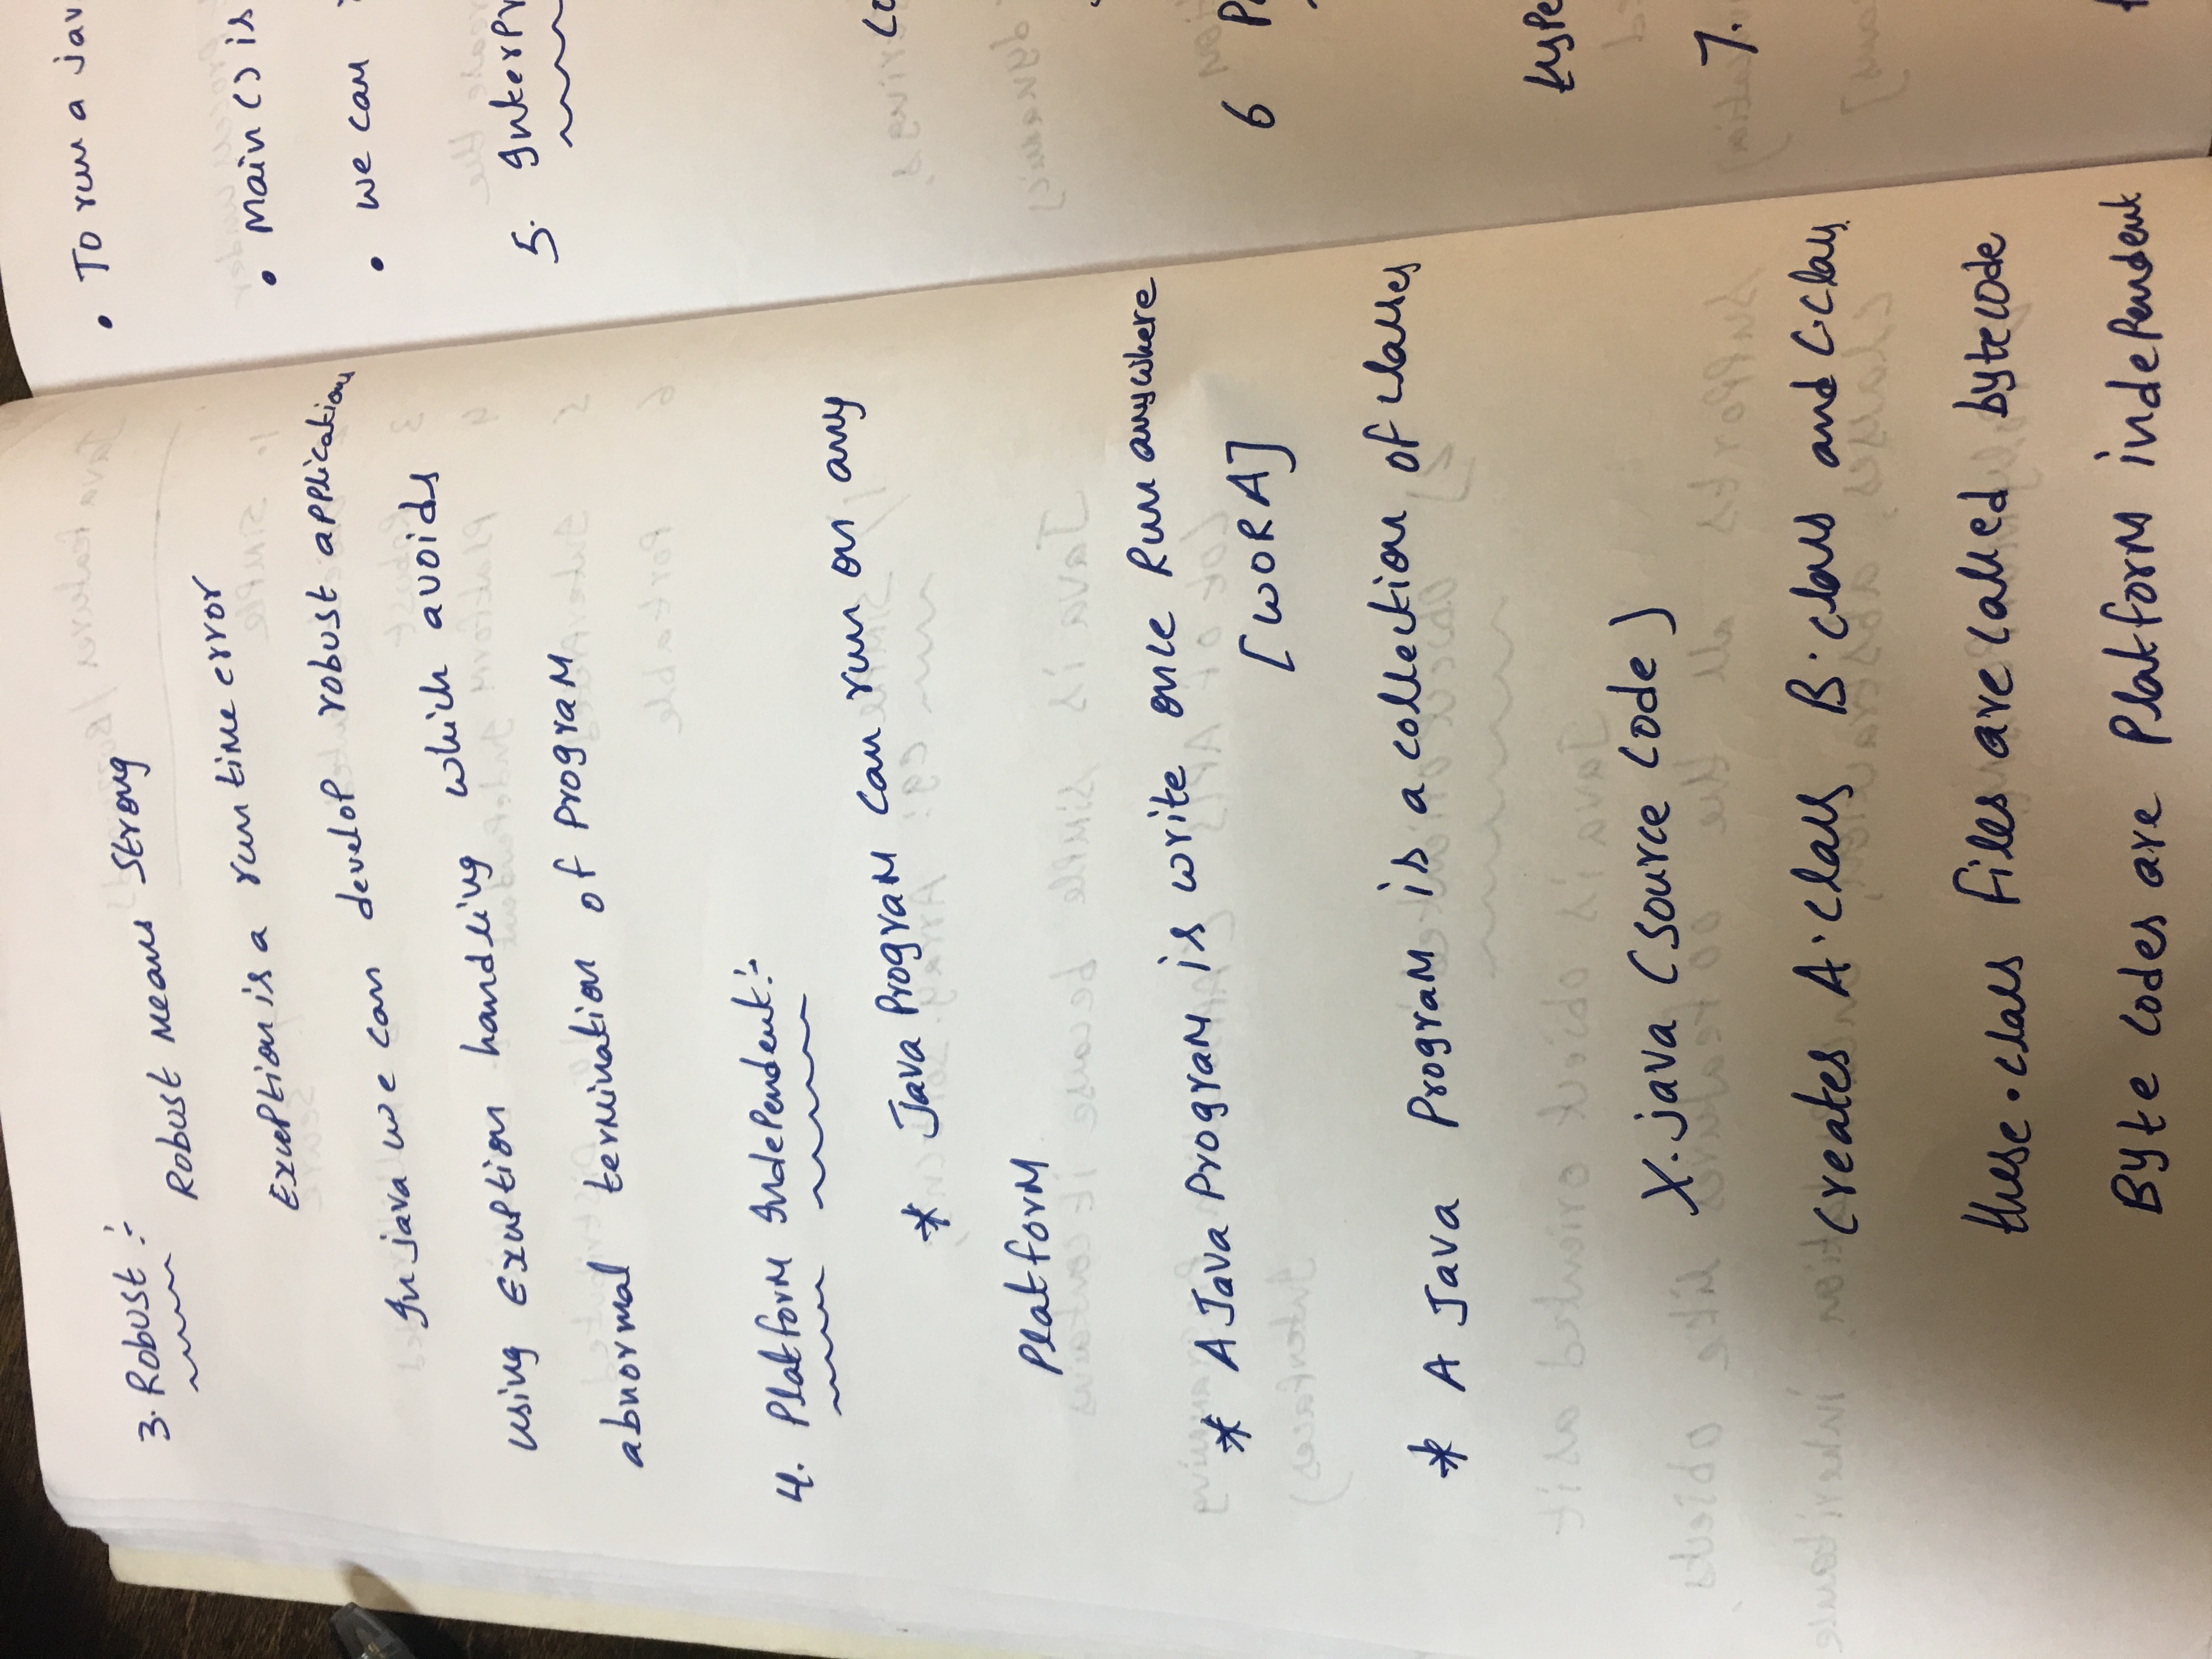 3. Robust :-
Robust Means Strong
Exception is a run time error
In java we can develop robust applications
using Exception handling which avoids
abnormal termination of Program
4. Platform Independent :-
* Java Program can run on any
Platform
* A Java Program is write once Run anywhere
[WORA]
* A Java Program is a collection of classes
X.java (source code)
creates A.class B.class and C.class
these .class files are called bytecode
Byte codes are Platform independent
• To run a jav
• Main () is
• we can
5. Interpr
co
6 P
type
7.